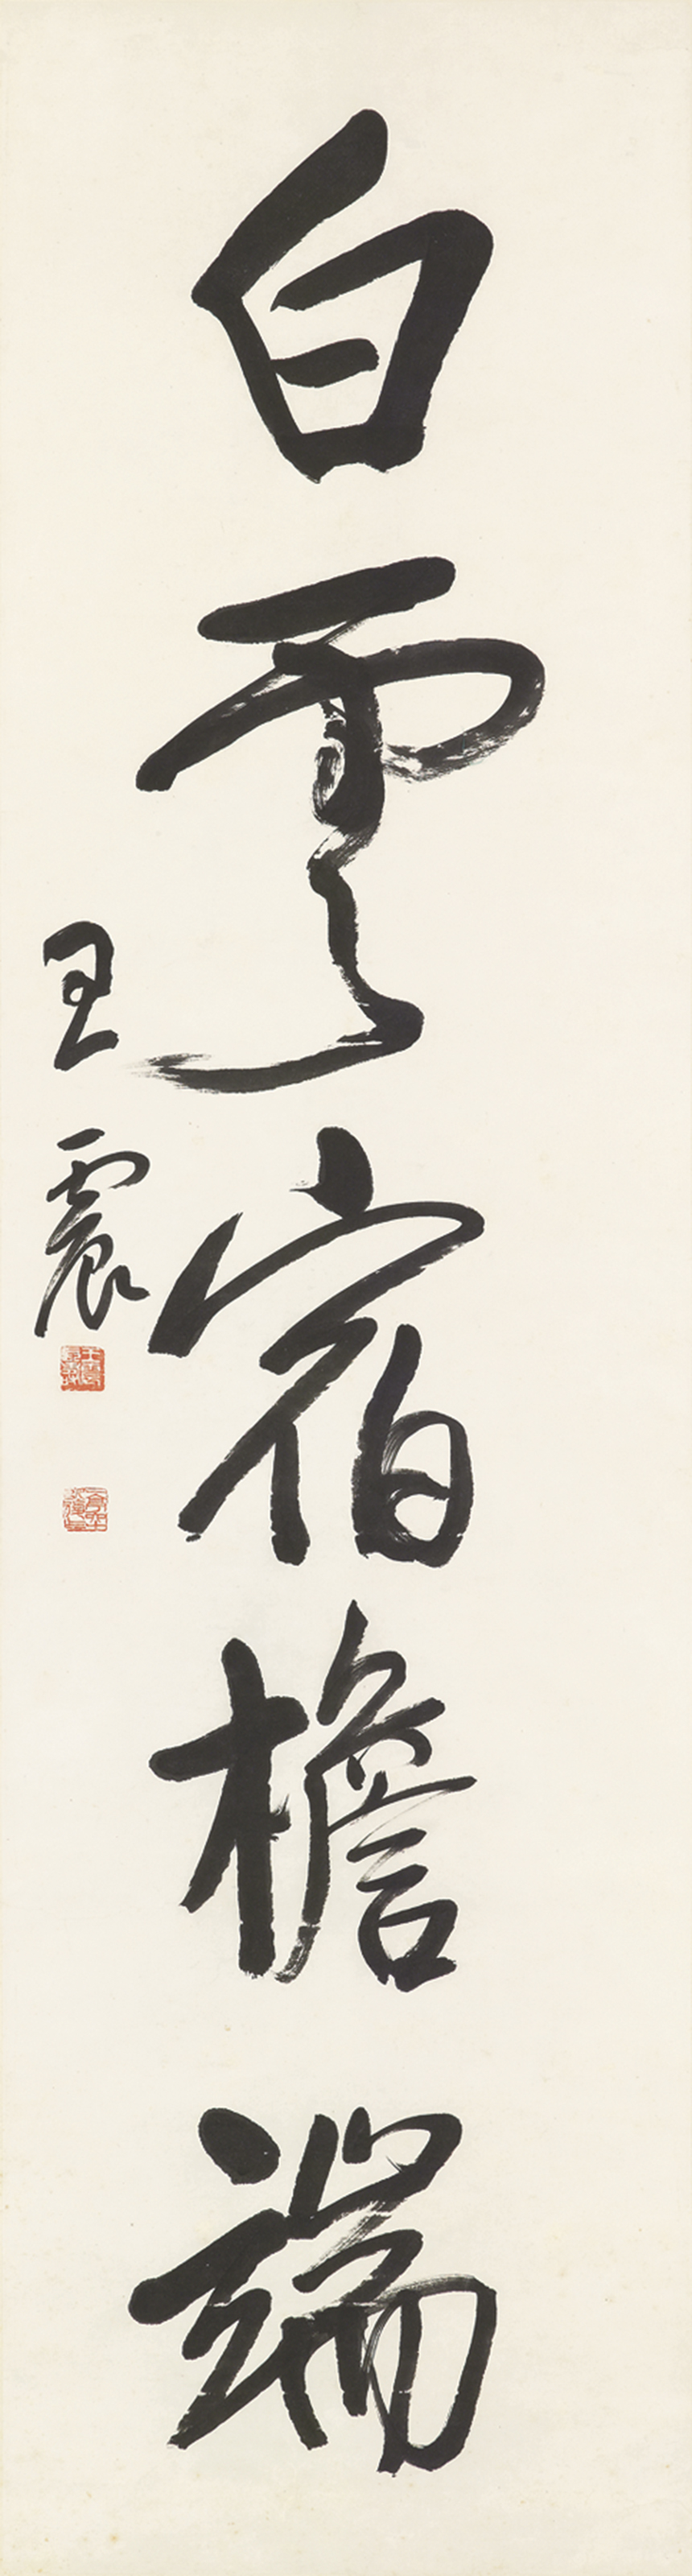 白雲宿檐端
王震